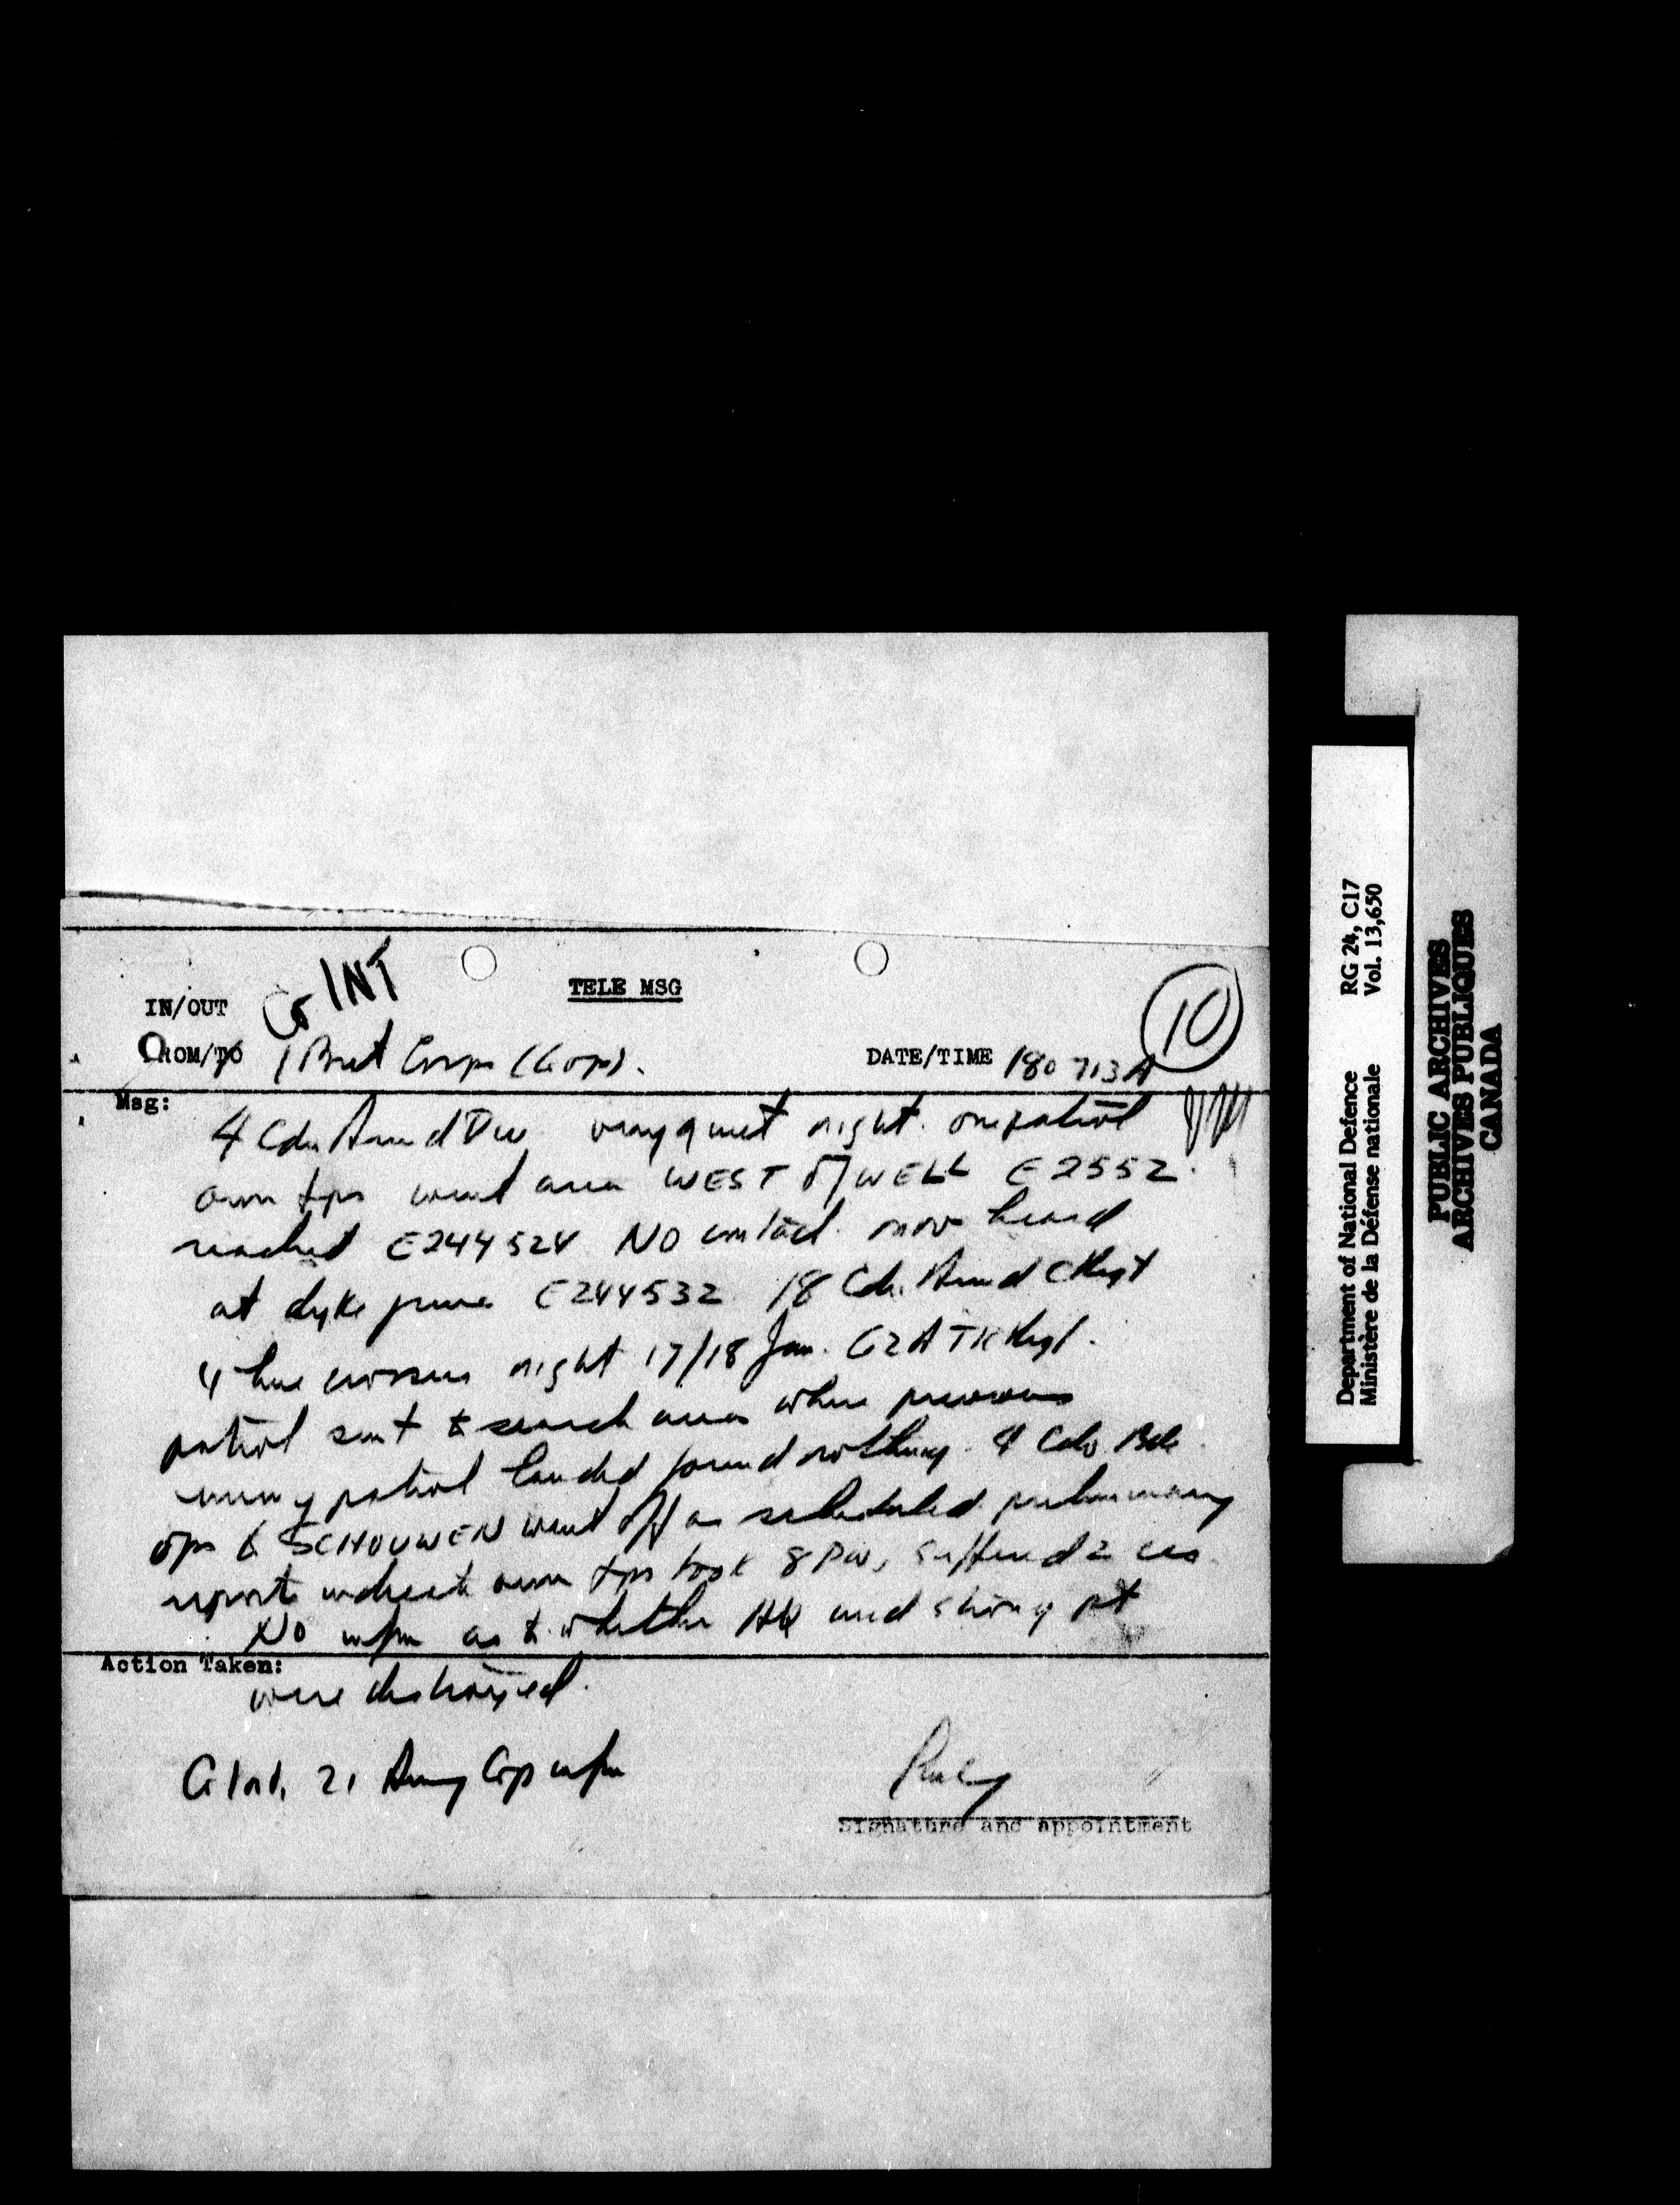 G INT
TELE MSG
10
IN/OUT
FROM/TO 1 Brit Corps (G ops).
DATE/TIME 180713A
Msg:
4 Cdn Armd Div very quiet night. one patrol
own tps went area WEST of WELL E2552.
reached E244524 NO contact. mov heard
at dyke junc E244532. 18 Cdn Armd C Regt
4 line crossers night 17/18 Jan. 62 A TK Regt.
patrol sent to search area where previous
enemy patrol landed found nothing. 4 Cdo Bde
ops to SCHOUWEN went off as scheduled. preliminary
reports indicate own tps took 8 PW, suffered 2 cas.
No infm as to whether HQ and strong pt
Action Taken:
were destroyed.
G Int, 21 Army Gp infm
Signature and appointment
Department of National Defence RG 24, C17
Ministère de la Défense nationale Vol. 13,650
PUBLIC ARCHIVES
ARCHIVES PUBLIQUES
CANADA